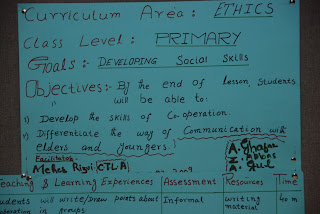 Curriculum Area: ETHICS
Class Level: PRIMARY
Goals:- DEVELOPING Social Skills
Objectives:- By the end of lesson, students
will be able to:
1) Develop the skills of Co-operation.
2) Differentiate the way of Communication with
elders and youngers.
Facilitator:
Mehes Rizvi (CTL-A)
Teaching & Learning Experiences Assessment Resources Time
Students will write/draw points about Informal writing 40 m
in groups material